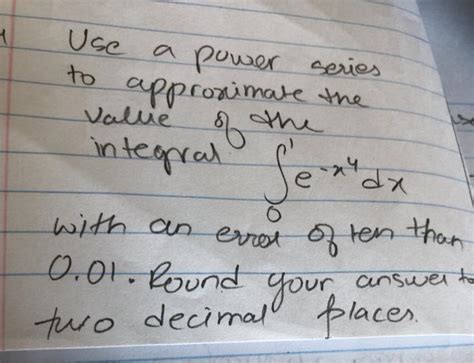 Use a power series
to approximate the
value of the
integral ∫₀¹ e^-x^4 dx
with an error of ten than
0.01. Round your answer to
two decimal places.